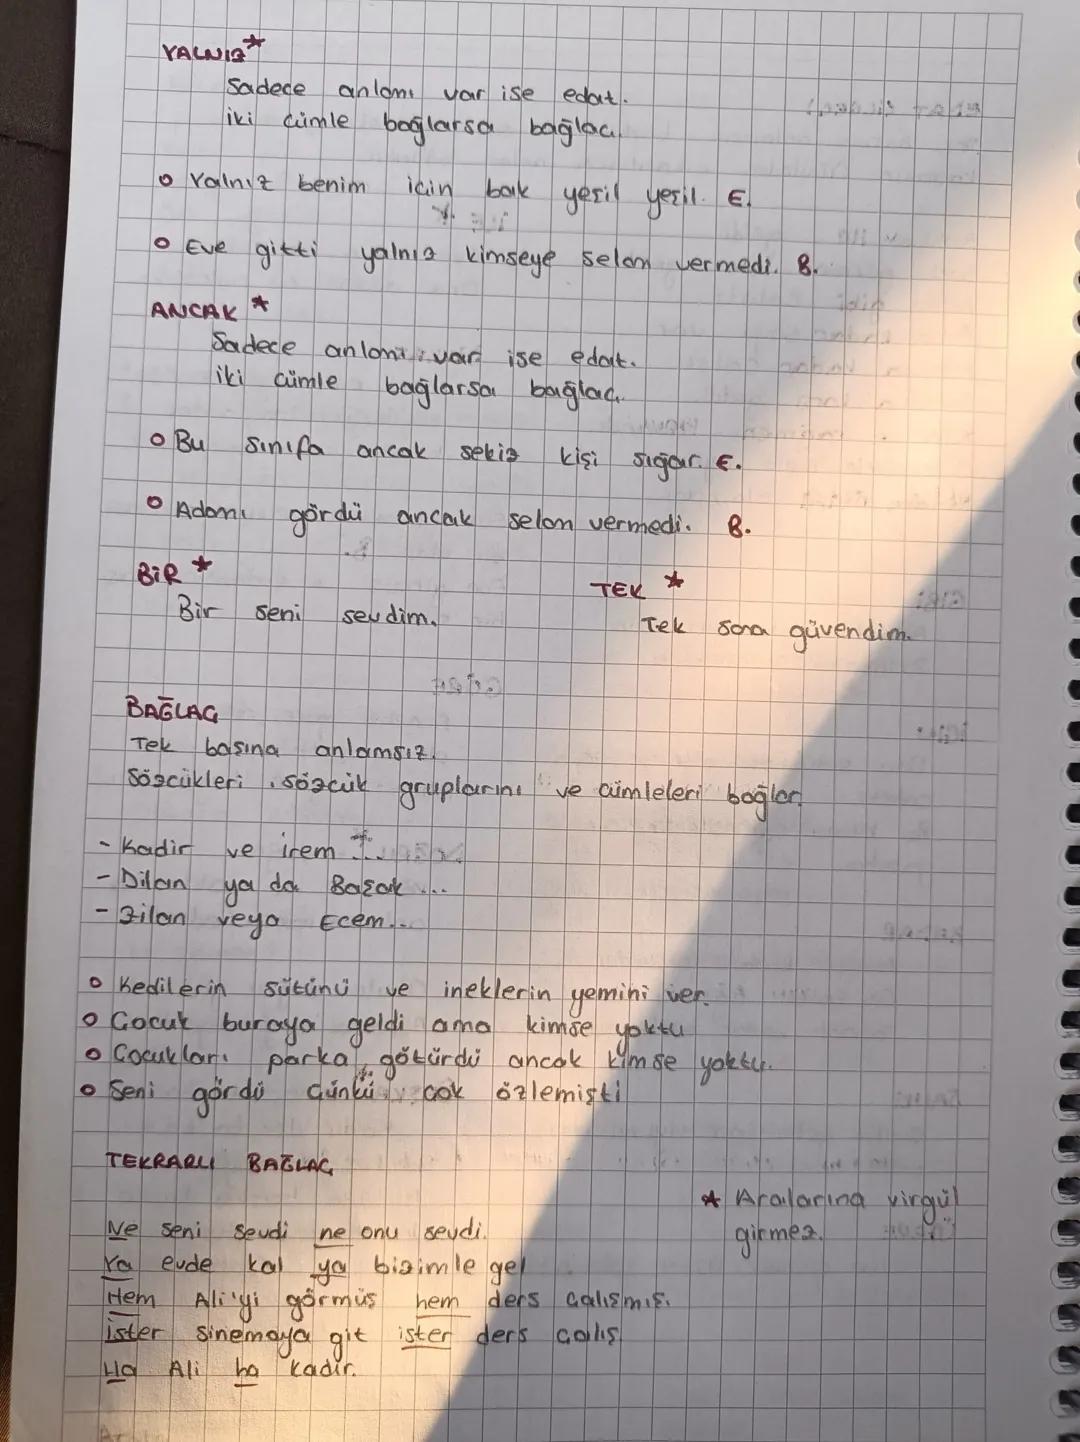 YALNIZ*
Sadece anlamı var ise edat.
iki cümle bağlarsa bağlaç.
o Yalnız benim için bak yeşil yeşil. E.
o Eve gitti yalnız kimseye selam vermedi. B.
ANCAK *
Sadece anlamı var ise edat.
iki cümle bağlarsa bağlaç.
o Bu sınıfa ancak sekiz kişi sığar. E.
o Adamı gördü ancak selam vermedi. B.
BİR *
Bir seni sevdim.
TEK *
Tek sana güvendim.
BAĞLAÇ
Tek başına anlamsız.
Sözcükleri, sözcük gruplarını ve cümleleri bağlar.
- Kadir ve irem ...
- Dilan ya da Başak ...
- Zilan veya Ecem...
o Kedilerin sütünü ve ineklerin yemini ver.
o Çocuk buraya geldi ama kimse yoktu
o Çocukları parka götürdü ancak kimse yoktu.
o Seni gördü çünkü çok özlemişti
TEKRARLI BAĞLAÇ
* Aralarına virgül
girmez.
Ne seni sevdi ne onu sevdi.
Ya evde kal ya bizimle gel
Hem Ali'yi görmüş hem ders çalışmış.
ister sinemaya git ister ders çalış
Ha Ali ha Kadir.